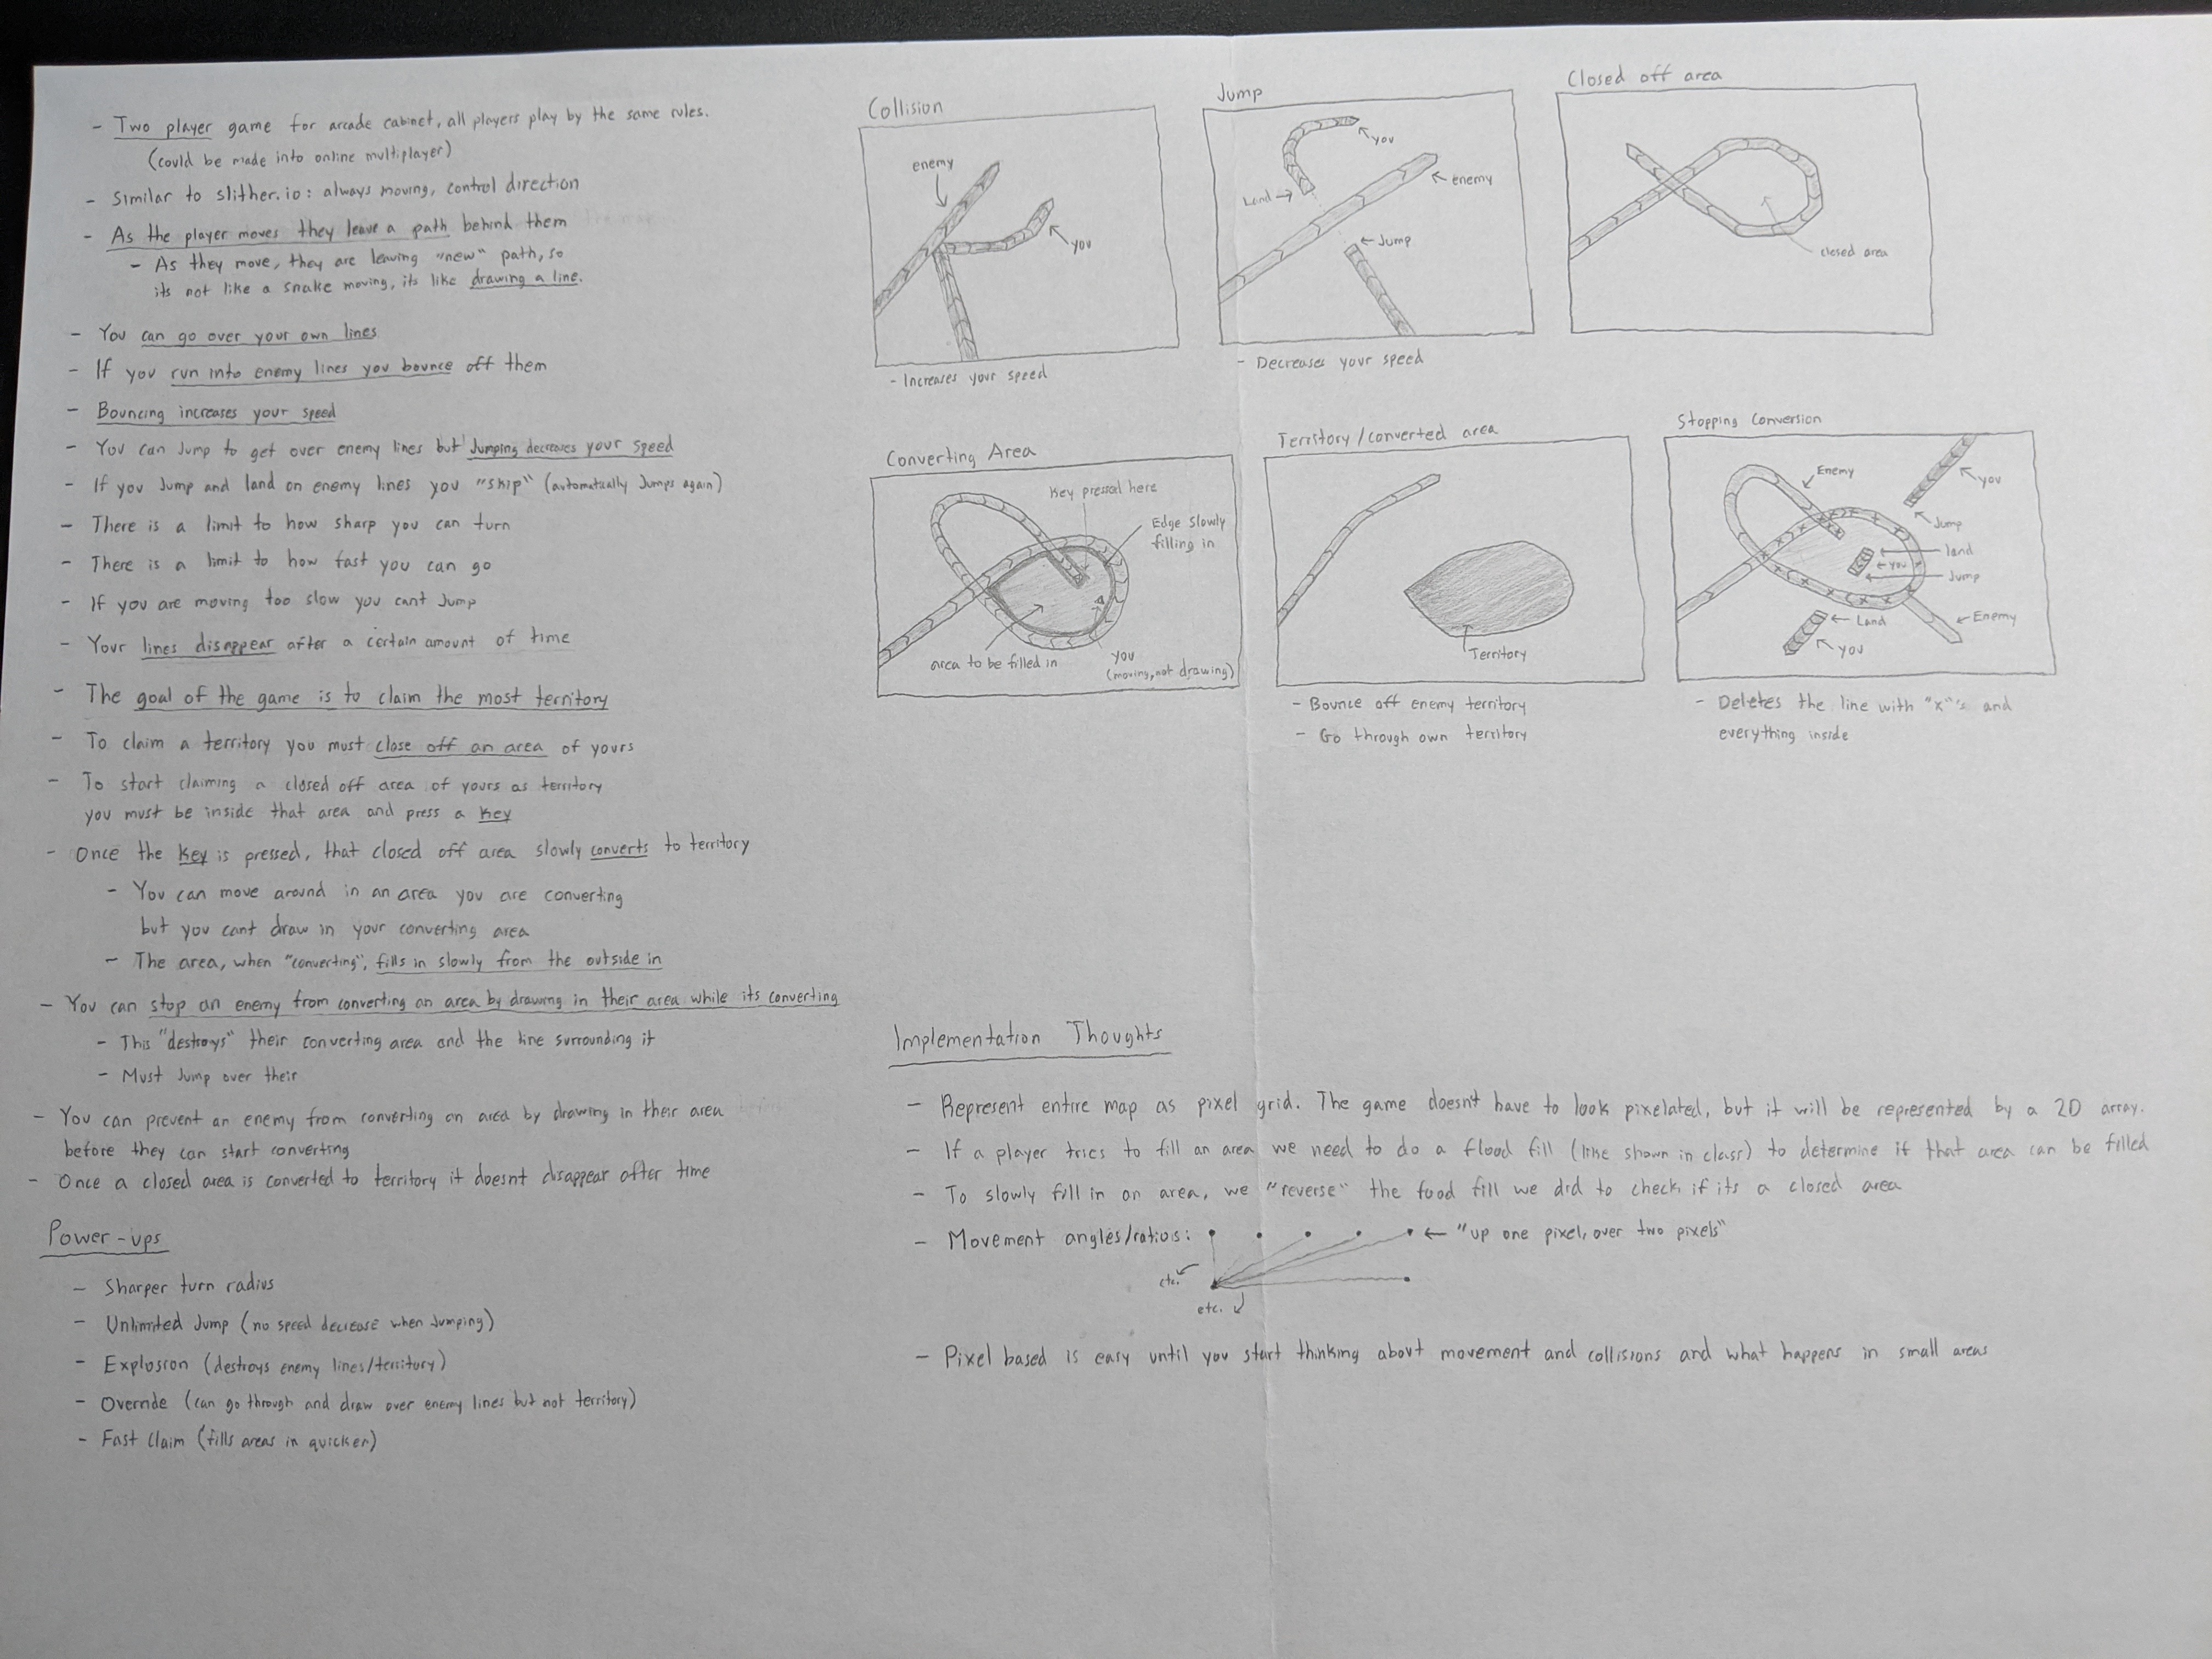 - Two player game for arcade cabinet, all players play by the same rules.
(could be made into online multiplayer)
- Similar to slither.io: always moving, control direction
- As the player moves they leave a path behind them
- As they move, they are leaving "new" path, so
its not like a snake moving, its like drawing a line.
- You can go over your own lines
- If you run into enemy lines you bounce off them
- Bouncing increases your speed
- You can Jump to get over enemy lines but Jumping decreases your speed
- If you Jump and land on enemy lines you "skip" (automatically Jumps again)
- There is a limit to how sharp you can turn
- There is a limit to how fast you can go
- If you are moving too slow you cant Jump
- Your lines disappear after a certain amount of time
- The goal of the game is to claim the most territory
- To claim a territory you must close off an area of yours
- To start claiming a closed off area of yours as territory
you must be inside that area and press a key
- Once the key is pressed, that closed off area slowly converts to territory
- You can move around in an area you are converting
but you cant draw in your converting area
- The area, when "converting", fills in slowly from the outside in
- You can stop an enemy from converting an area by drawing in their area while its converting
- This "destroys" their converting area and the line surrounding it
- Must Jump over their
- You can prevent an enemy from converting an area by drawing in their area
before they can start converting
- Once a closed area is converted to territory it doesnt disappear after time
Power-ups
- Sharper turn radius
- Unlimited Jump (no speed decrease when Jumping)
- Explosion (destroys enemy lines/territory)
- Override (can go through and draw over enemy lines but not territory)
- Fast Claim (fills areas in quicker)
Collision
enemy
you
- Increases your speed
Jump
you
enemy
Land
Jump
- Decreases your speed
Closed off area
closed area
Converting Area
Key pressed here
Edge slowly
filling in
area to be filled in
you
(moving, not drawing)
Territory/converted area
Territory
- Bounce off enemy territory
- Go through own territory
Stopping Conversion
Enemy
you
Jump
land
you
Jump
Land
Enemy
you
- Deletes the line with "x"'s and
everything inside
Implementation Thoughts
- Represent entire map as pixel grid. The game doesnt have to look pixelated, but it will be represented by a 2D array.
- If a player tries to fill an area we need to do a flood fill (like shown in class) to determine if that area can be filled
- To slowly fill in an area, we "reverse" the food fill we did to check if its a closed area
- Movement angles/ratios:
"up one pixel, over two pixels"
etc.
etc.
- Pixel based is easy until you start thinking about movement and collisions and what happens in small areas